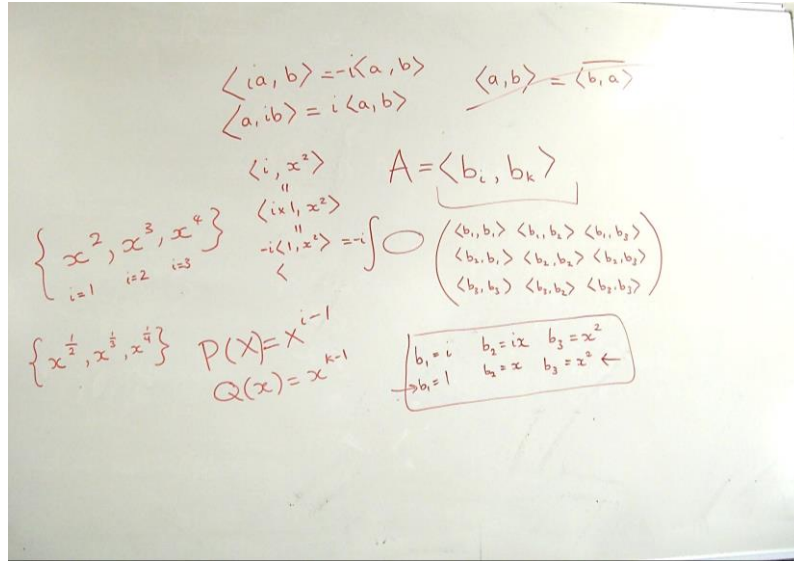 ⟨ia, b⟩ = -i⟨a, b⟩
⟨a, ib⟩ = i⟨a, b⟩
⟨a, b⟩ = \overline{⟨b, a⟩}
⟨i, x²⟩
"
⟨i×1, x²⟩
"
-i⟨1, x²⟩ = -i∫
⟨
A = ⟨bᵢ, bₖ⟩
⟨b₁, b₁⟩ ⟨b₁, b₂⟩ ⟨b₁, b₃⟩
⟨b₂, b₁⟩ ⟨b₂, b₂⟩ ⟨b₂, b₃⟩
⟨b₃, b₃⟩ ⟨b₃, b₂⟩ ⟨b₃, b₃⟩
{x², x³, x⁴}
i=1 i=2 i=3
{x^{1/2}, x^{1/3}, x^{1/4}}
P(X) = x^{i-1}
Q(x) = x^{k-1}
b₁ = i b₂ = ix b₃ = x²
→ b₁ = 1 b₂ = x b₃ = x² ←